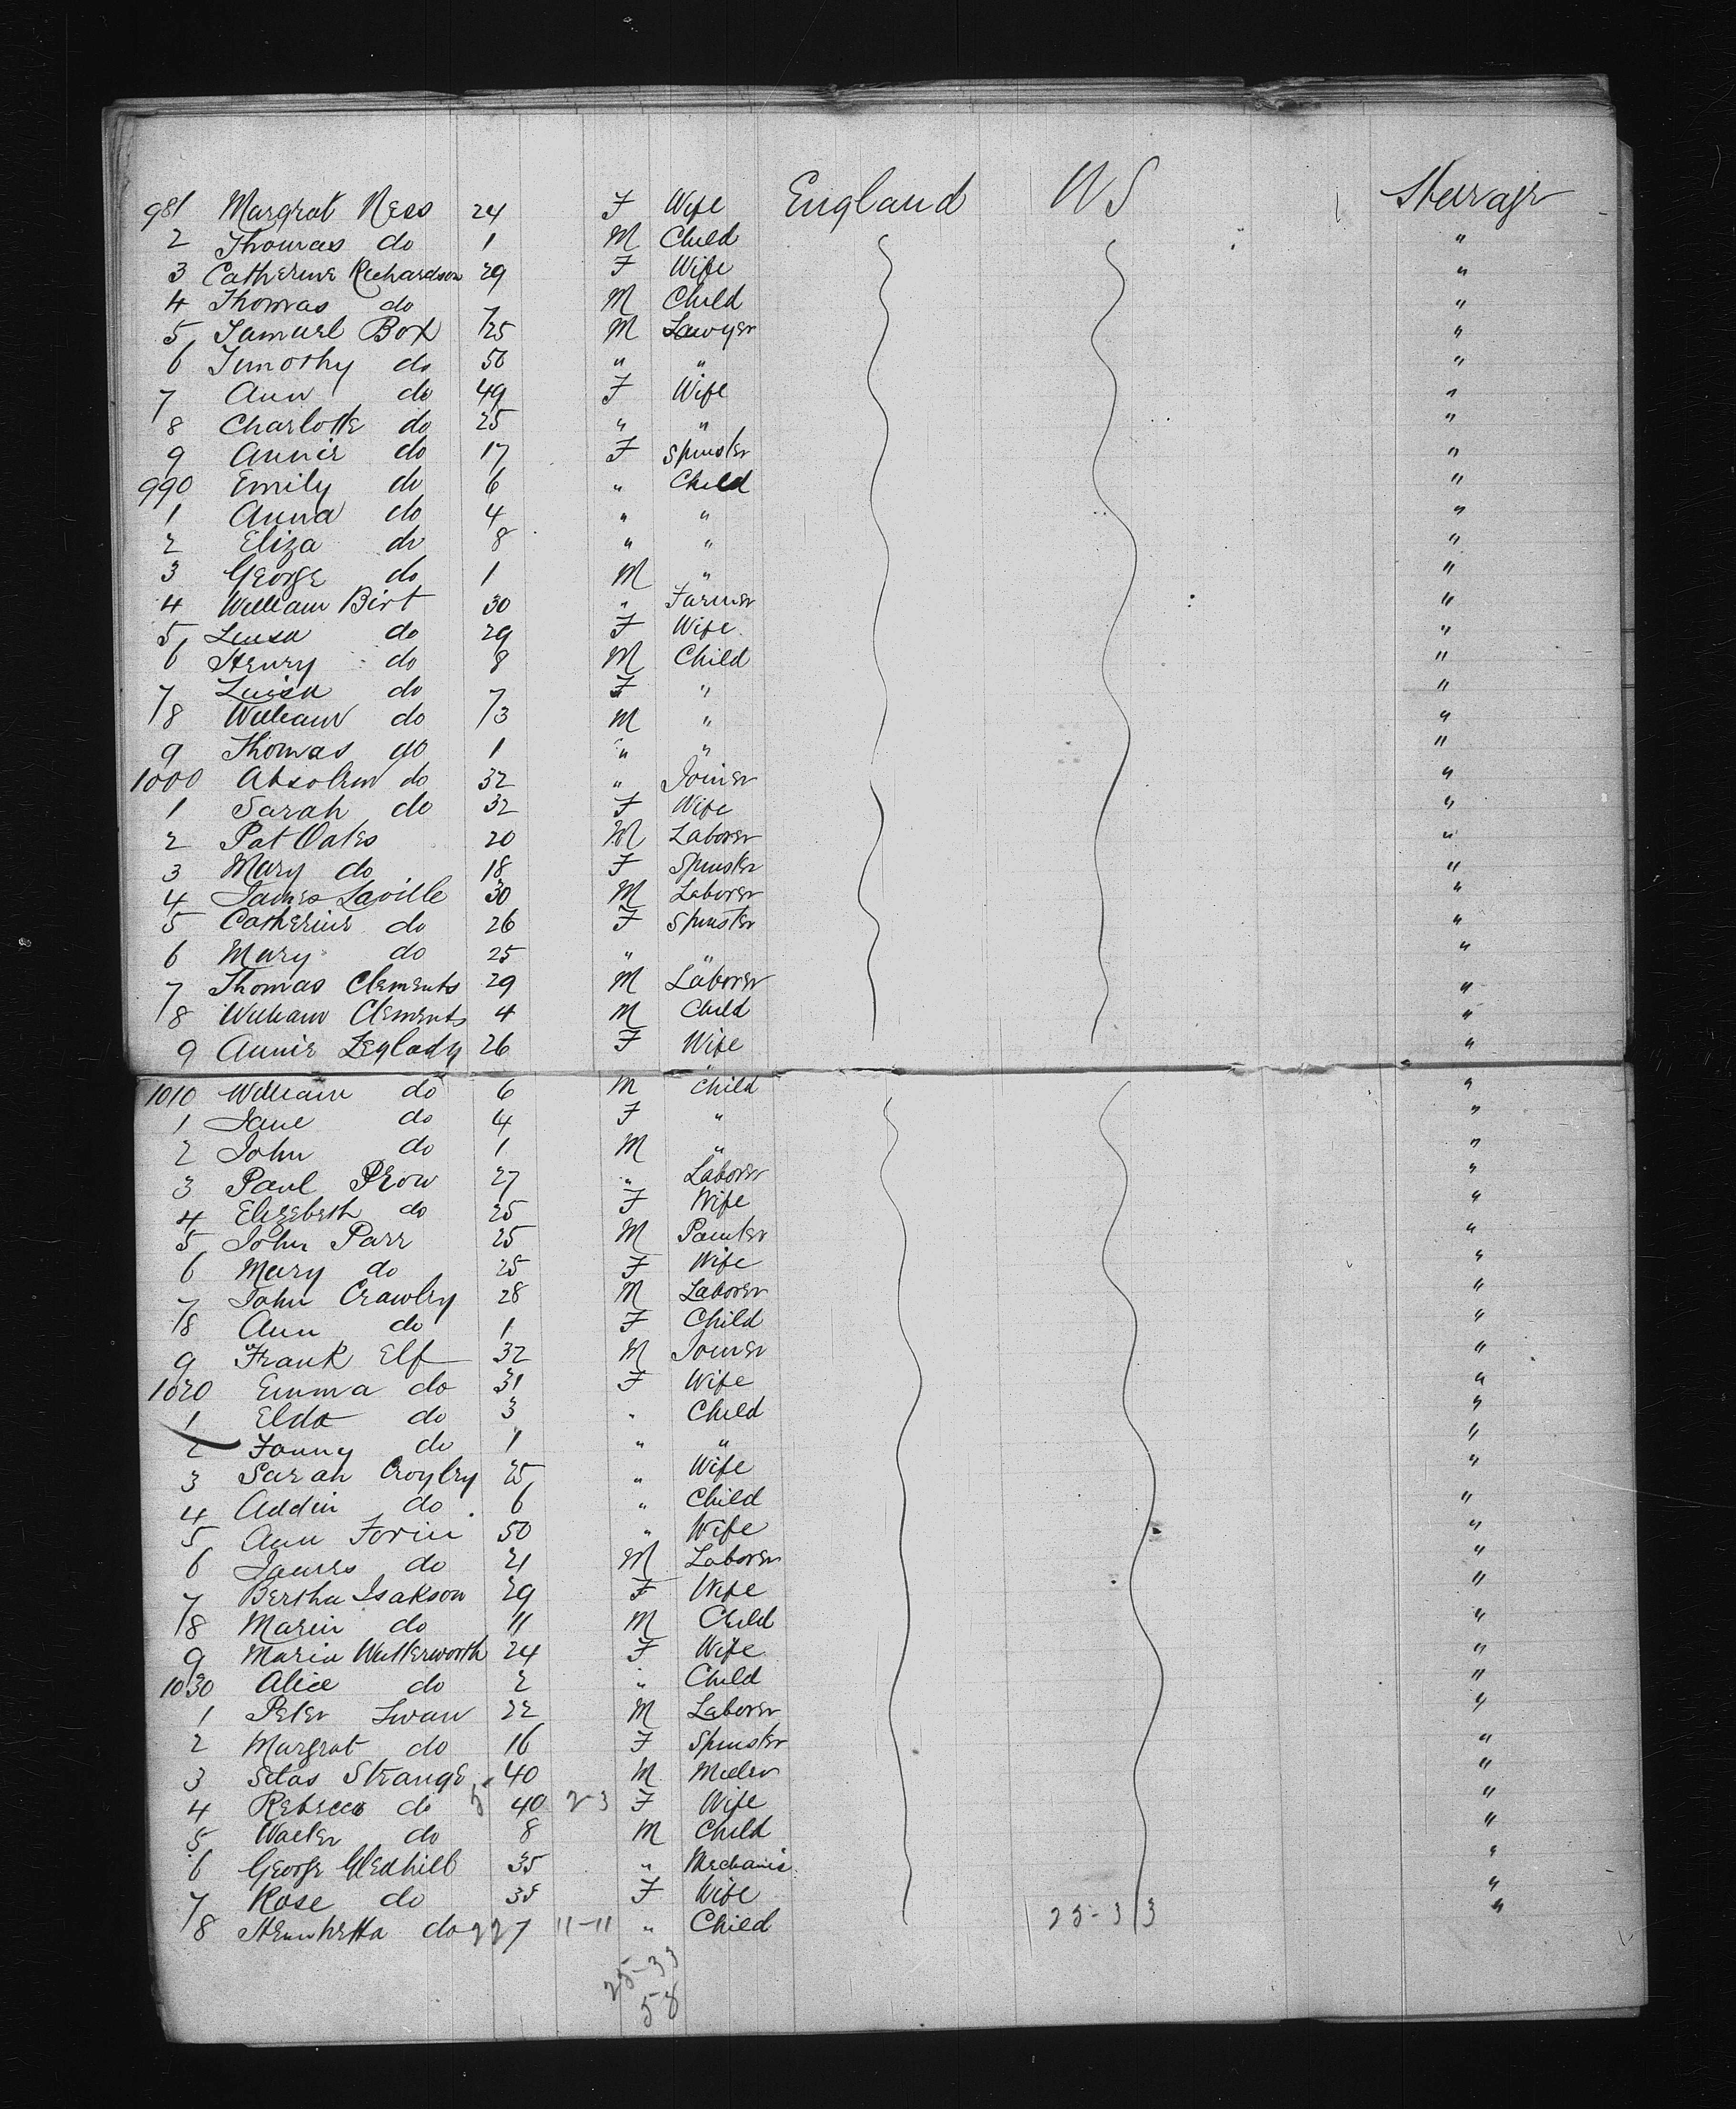 981 Margrat Ness 24 F Wife England US Steerage
2 Thomas do 1 M Child "
3 Catherine Richardson 29 F Wife "
4 Thomas do 7 M Child "
5 Samuel Box 25 M Lawyer "
6 Timothy do 50 " " "
7 Ann do 49 F Wife "
8 Charlotte do 25 " " "
9 Annie do 17 F Spinster "
990 Emily do 6 " Child "
1 Anna do 4 " " "
2 Eliza do 8 " " "
3 George do 1 M " "
4 William Birt 30 " Farmer "
5 Luisa do 29 F Wife "
6 Henry do 8 M Child "
7 Luisa do 7 F " "
8 William do 3 M " "
9 Thomas do 1 " " "
1000 Absolem do 32 " Joiner "
1 Sarah do 32 F Wife "
2 Pat Oates 20 M Laborer "
3 Mary do 18 F Spinster "
4 James Laville 30 M Laborer "
5 Catherine do 26 F Spinster "
6 Mary do 25 " " "
7 Thomas Clements 29 M Laborer "
8 William Clements 4 M Child "
9 Annie Leglady 26 F Wife "
1010 William do 6 M Child "
1 Jane do 4 F " "
2 John do 1 M " "
3 Paul Prow 27 " Laborer "
4 Elizebeth do 25 F Wife "
5 John Parr 25 M Painter "
6 Mary do 25 F Wife "
7 John Crawley 28 M Laborer "
8 Ann do 1 F Child "
9 Frank Elf 32 M Joiner "
1020 Emma do 31 F Wife "
1 Elda do 3 " Child "
2 Fanny do 1 " " "
3 Sarah Croyley 25 " Wife "
4 Addin do 6 " Child "
5 Ann Forin 50 " Wife "
6 James do 21 M Laborer "
7 Bertha Isakson 29 F Wife "
8 Marin do 11 M Child "
9 Maria Wutterworth 24 F Wife "
1030 Alice do 2 " Child "
1 Peter Swan 22 M Laborer "
2 Margrat do 16 F Spinster "
3 Silas Strange 40 M Miller "
4 Rebecca do 5 40 23 F Wife "
5 Walter do 8 M Child "
6 George Gledhill 35 " Mechanic "
7 Rose do 35 F Wife "
8 Henrhetta do 22 7 11-11 " Child 25-33 "
25-33
58